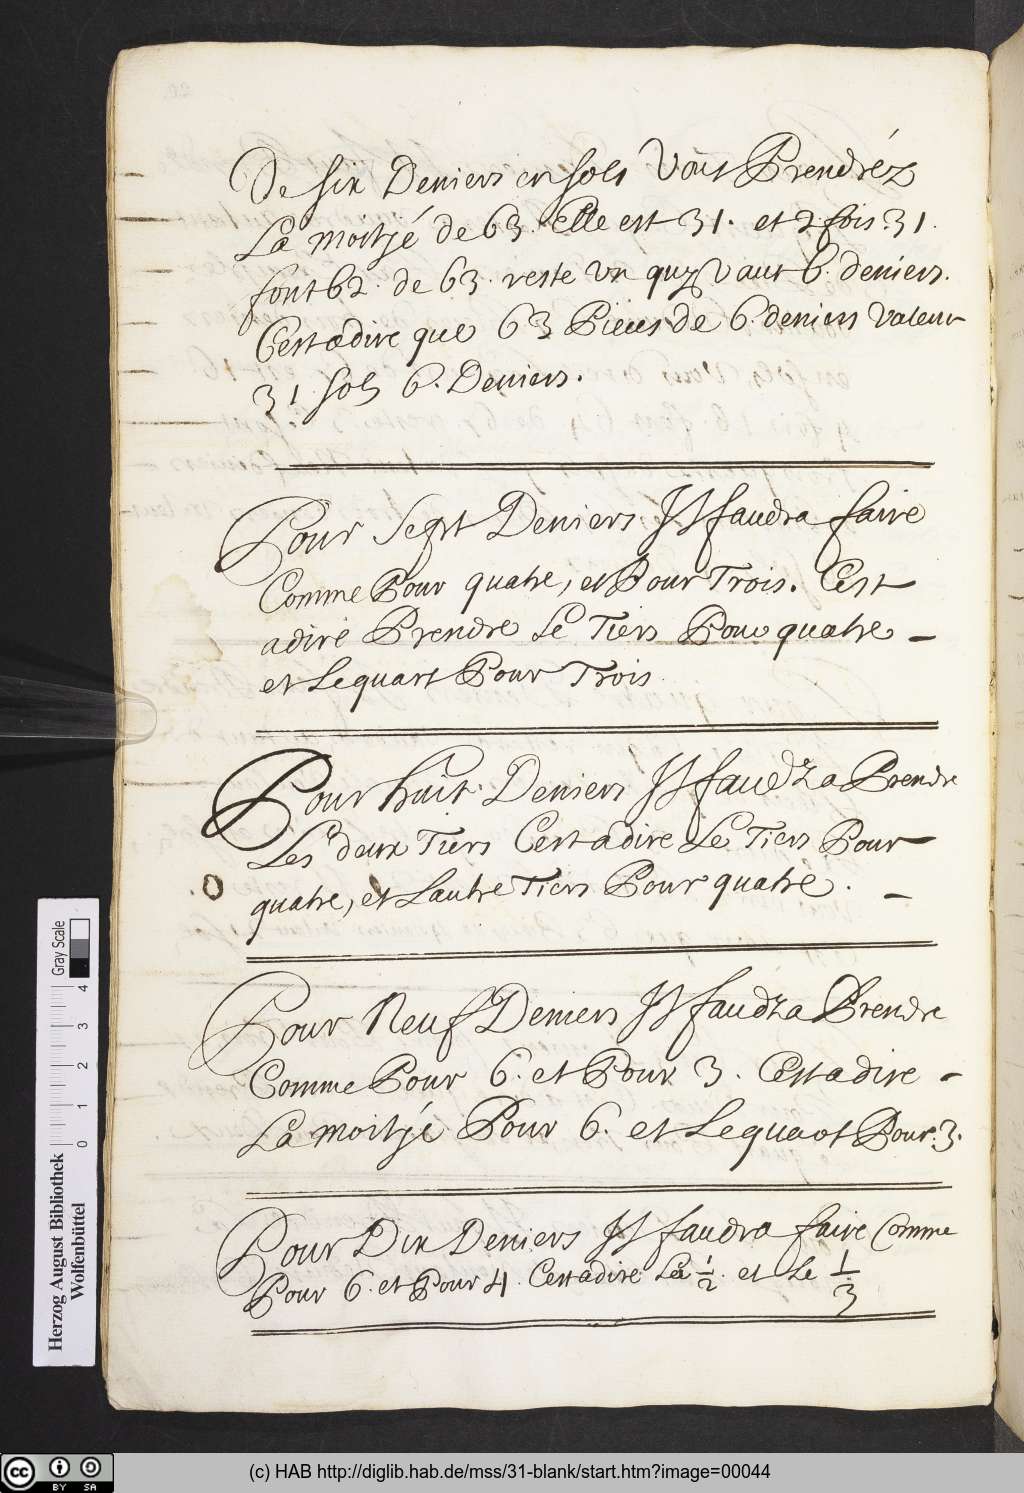 De six Deniers en sols Vous Prendréz
La moitjé de 63. Elle est 31. et 2 fois 31.
font 62. de 63. reste un quy vaut 6. deniers.
Cestadire que 63 Pieces de 6. deniers valeur
31 sols 6. Deniers.
Pour Sept Deniers Il faudra faire
Comme Pour quatre, et Pour Trois. Cest
adire Prendre Le Tiers Pour quatre
et Lequart Pour Trois
Pour huit Deniers Il faudra Prendre
Les deux Tiers Cestadire Le Tiers Pour
quatre, et Lautre Tiers Pour quatre.
Pour Neuf Deniers Il faudra Prendre
Comme Pour 6. et Pour 3. Cestadire
La moitjé Pour 6. et Lequart Pour 3.
Pour Dix Deniers Il faudra faire Comme
Pour 6. et Pour 4. Cestadire La 1/2. et Le 1/3
Herzog August Bibliothek
Wolfenbüttel
0 1 2 3 4
Gray Scale
cc BY SA
(c) HAB http://diglib.hab.de/mss/31-blank/start.htm?image=00044